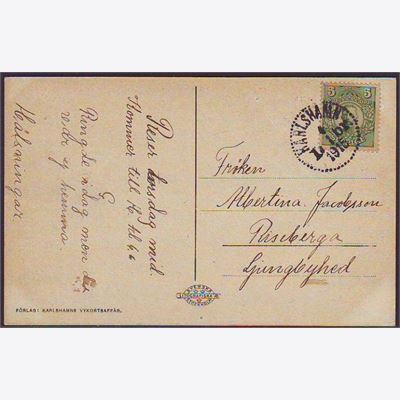 Reser torsdag mid.
Kommer till H. kl 6
G
Ringde i dag men du
var ej hemma.
Hälsningar
KARLSHAMN
1916
5 5
Fröken
Albertina Jacobsson
Riseberga
Ljungbyhed
FÖRLAG: KARLSHAMNS VYKORTSAFFÄR.